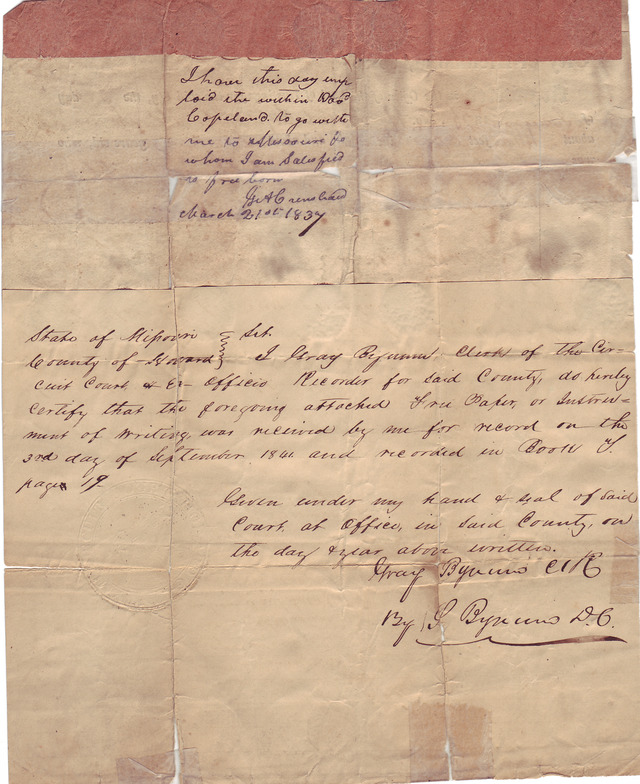 I have this day emp
loid the within
Copeland to go with
me to Missouri
whom I am Satisfied
is free born
Crenshaw
March 21st 1837
State of Missouri } Sct.
County of Howard } I Gray Bynum Clerk of the Cir-
cuit Court & Ex Officio Recorder for said County, do hereby
certify that the foregoing attached Free Paper, or Instru-
ment of writing, was received by me for record on the
3rd day of September 1841 and recorded in Book
page 19.
Given under my hand & seal of said
Court at Office, in said County, on
the day & year above written.
Gray Bynum Clk
By S Bynum D.C.